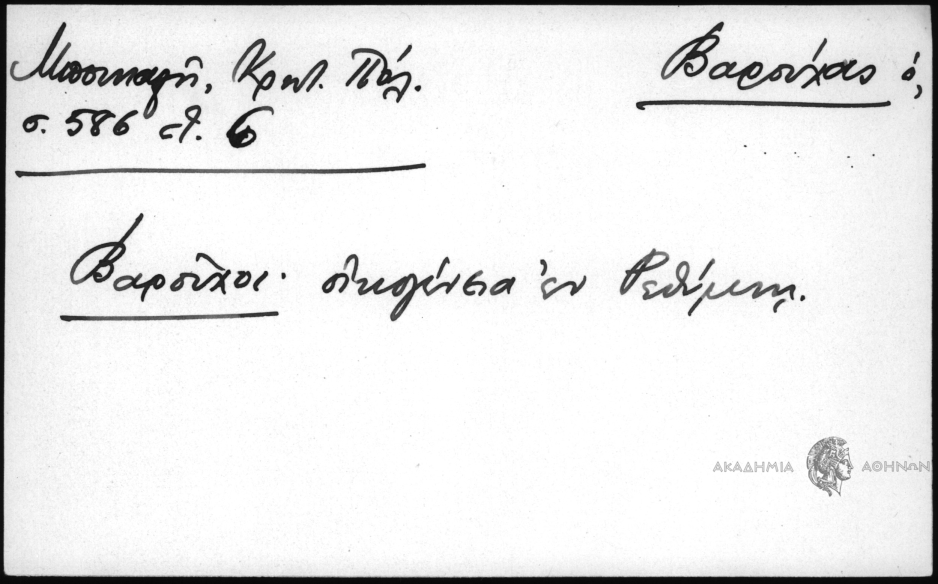 Μπουνιαλῆ, Κρητ. Πόλ.
σ. 586 στ. 6
Βαρούχας ὁ,
Βαροῦχοι· οἰκογένεια ἐν Ρεθύμνῃ.
ΑΚΑΔΗΜΙΑ ΑΘΗΝΩΝ